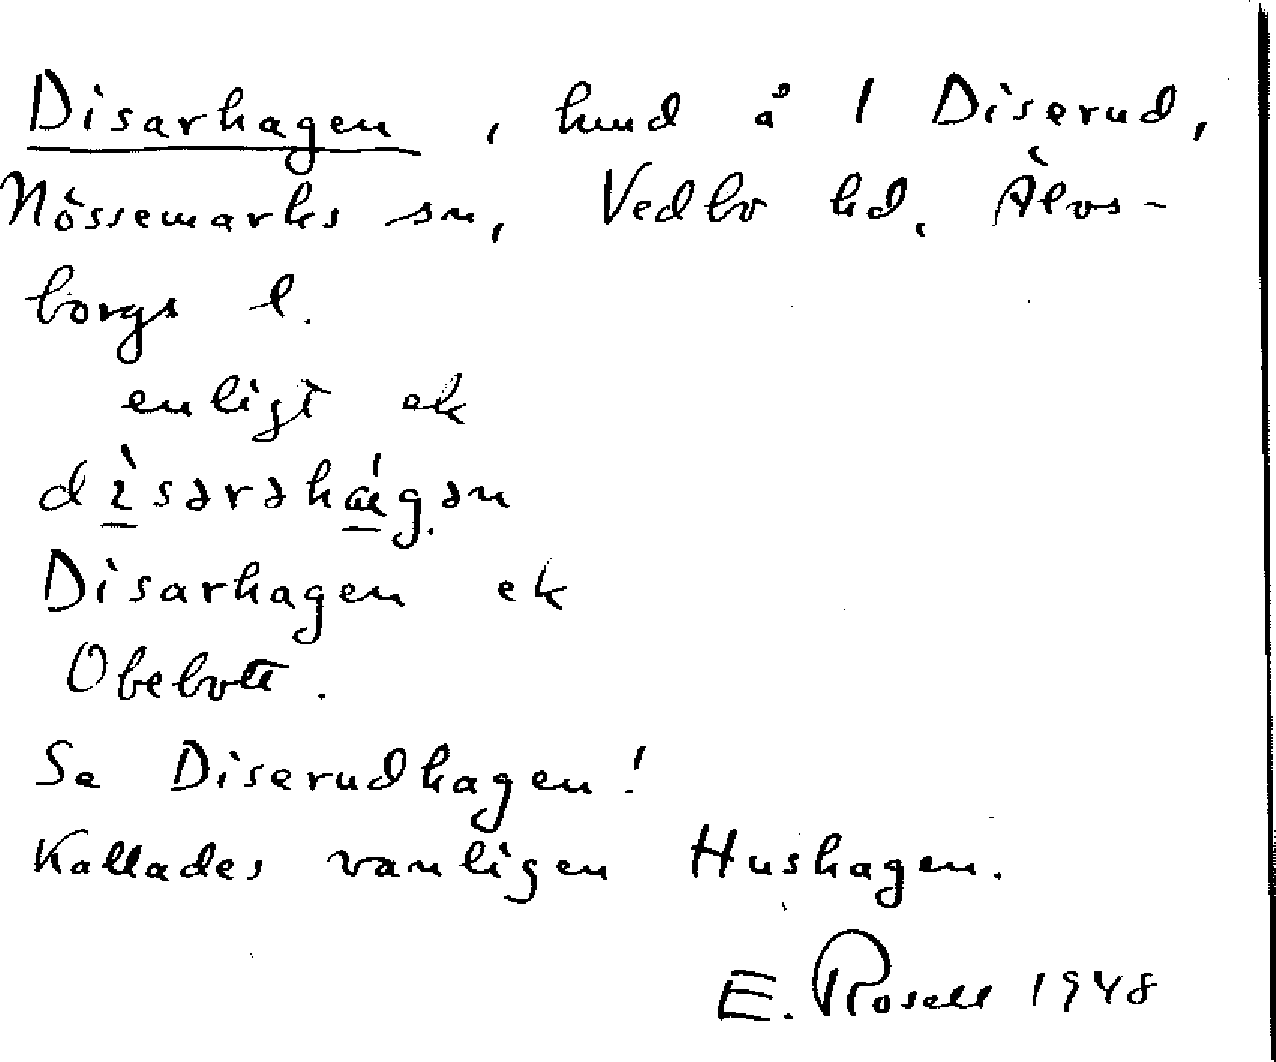 Disarhagen, hmd å 1 Diserud,
Nössemarks sn, Vedbo hd. Älvs-
borgs l.
enligt ek
dìsərəhágən
Disarhagen ek
Obebott.
Se Diserudhagen!
Kallades vanligen Hushagen.
E. Rosell 1948